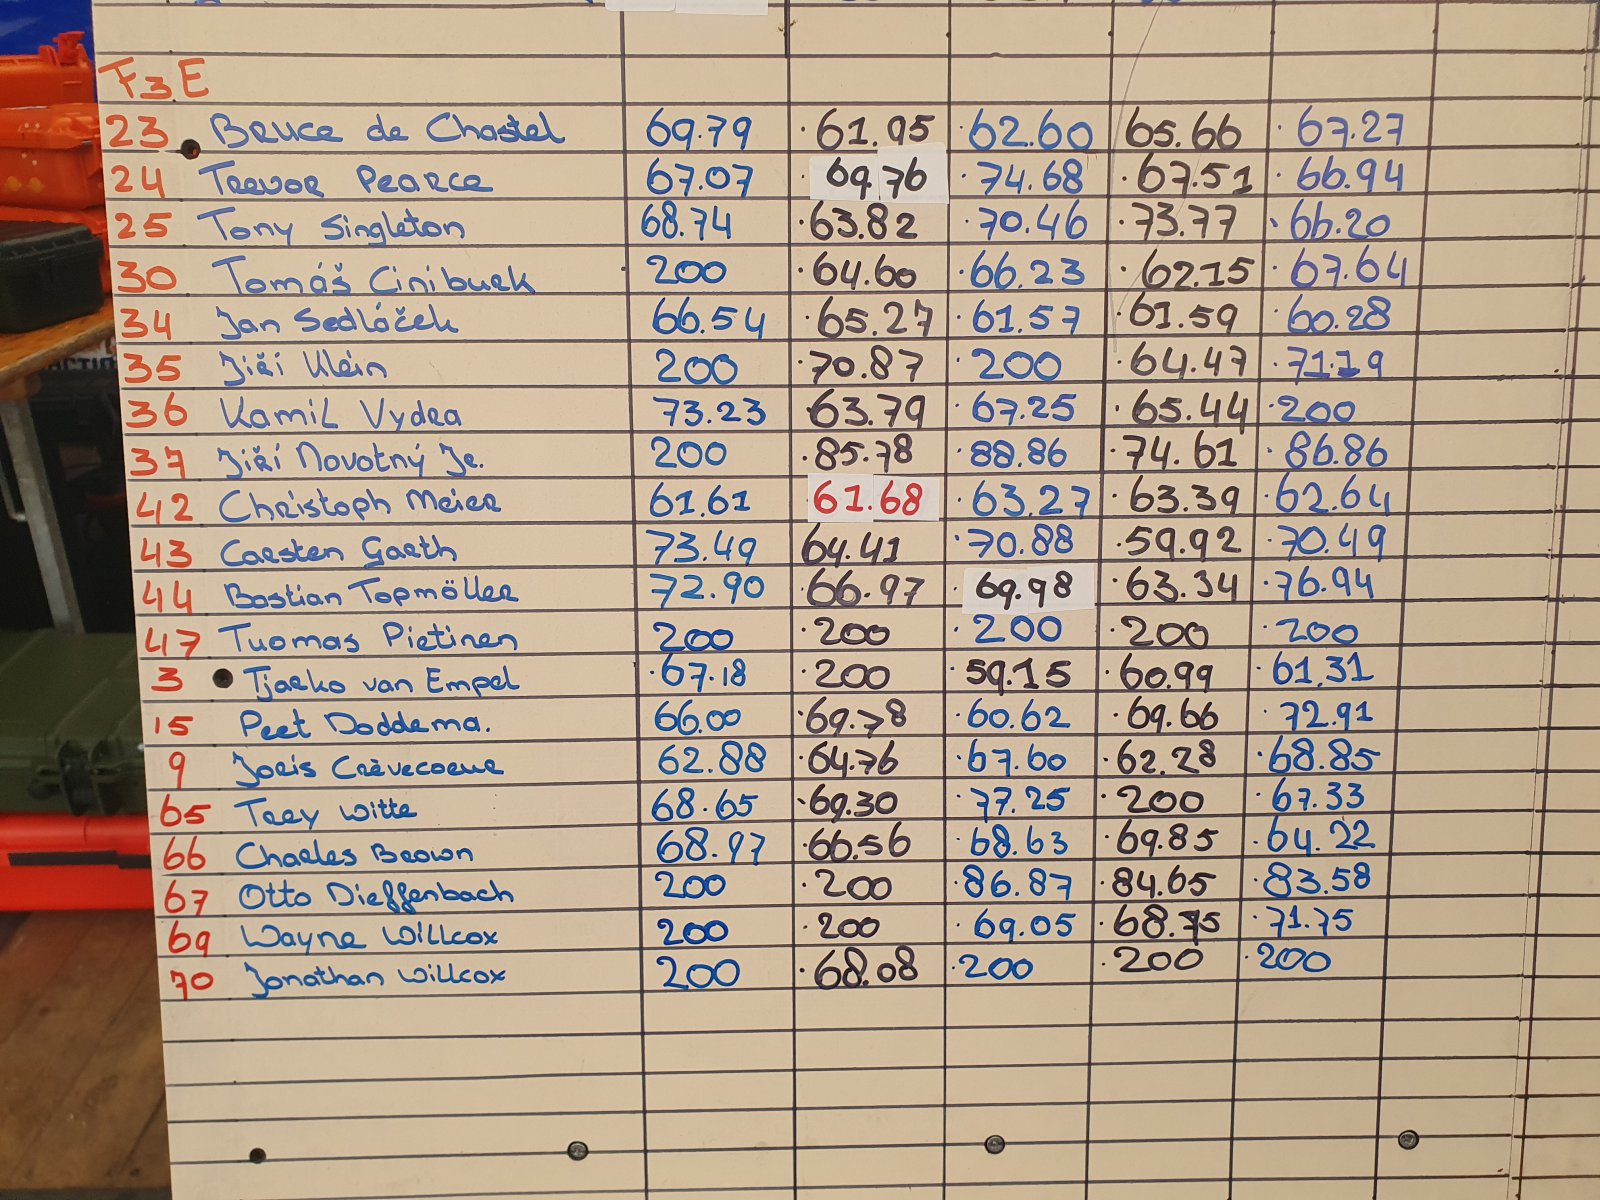 F3E
23 Bruce de Chastel 69.79 61.95 62.60 65.66 67.27
24 Trevor Pearce 67.07 69.76 74.68 67.51 66.94
25 Tony Singleton 68.74 63.82 70.46 73.77 66.20
30 Tomáš Ciniburk 200 64.60 66.23 62.15 67.64
34 Jan Sedláček 66.54 65.27 61.57 61.59 60.28
35 Jiří Klein 200 70.87 200 64.47 71.19
36 Kamil Vydra 73.23 63.79 67.25 65.44 200
37 Jiří Novotný Jr. 200 85.78 88.86 74.61 86.86
42 Christoph Meier 61.61 61.68 63.27 63.39 62.64
43 Carsten Garth 73.49 64.41 70.88 59.92 70.49
44 Bastian Topmöller 72.90 66.97 69.98 63.34 76.94
47 Tuomas Pietinen 200 200 200 200 200
3 Tjarko van Empel 67.18 200 59.15 60.99 61.31
15 Peet Doddema. 66.00 69.78 60.62 69.66 72.91
9 Joris Crèvecoeur 62.88 64.76 67.60 62.28 68.85
65 Trey Witte 68.65 69.30 77.25 200 67.33
66 Charles Brown 68.97 66.56 68.63 69.85 64.22
67 Otto Dieffenbach 200 200 86.87 84.65 83.58
69 Wayne Willcox 200 200 69.05 68.75 71.75
70 Jonathan Willcox 200 68.08 200 200 200